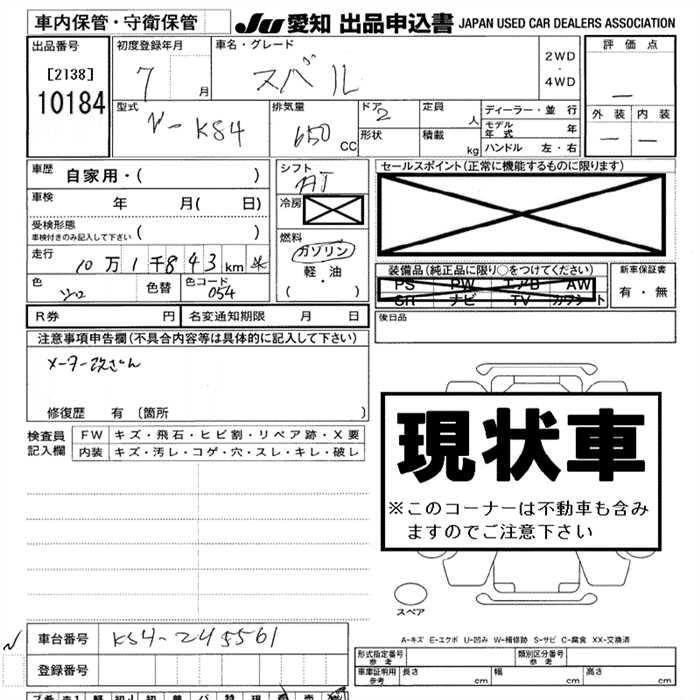 車内保管・守衛保管
JU 愛知 出品申込書 JAPAN USED CAR DEALERS ASSOCIATION
出品番号
[2138]
10184
初度登録年月
7 月
車名・グレード
スバル
2WD
・
4WD
評価点
—
外装 内装
— —
型式
V-KS4
排気量
650 CC
ドア
2
形状
定員 人
積載 kg
ディーラー・並行
モデル年式 年
ハンドル 左・右
車歴 自家用・( )
車検 年 月( 日)
受検形態
車検付きのみ記入して下さい ( )
走行 10万1千843km
色 シロ 色替 色コード 054
シフト
AT
冷房
燃料
ガソリン
・
軽・油
( )
セールスポイント(正常に機能するものに限ります)
装備品(純正品に限り○をつけてください)
PS PW エアB AW
SR ナビ TV カワシート
新車保証書
有・無
R券 円 名変通知期限 月 日
後日品
注意事項申告欄(不具合内容等は具体的に記入して下さい)
メーター改ざん
修復歴 有 〔箇所 〕
検査員記入欄
FW キズ・飛石・ヒビ割・リペア跡・X要
内装 キズ・汚レ・コゲ・穴・スレ・キレ・破レ
現状車
※このコーナーは不動車も含み
ますのでご注意下さい
スペア
A-キズ E-エクボ U-凹み W-補修跡 S-サビ C-腐食 XX-交換済
車台番号 KS4-245561
登録番号
形式指定番号
参考
類別区分番号
参考
車庫証明用
参考
長さ cm 幅 cm 高さ cm